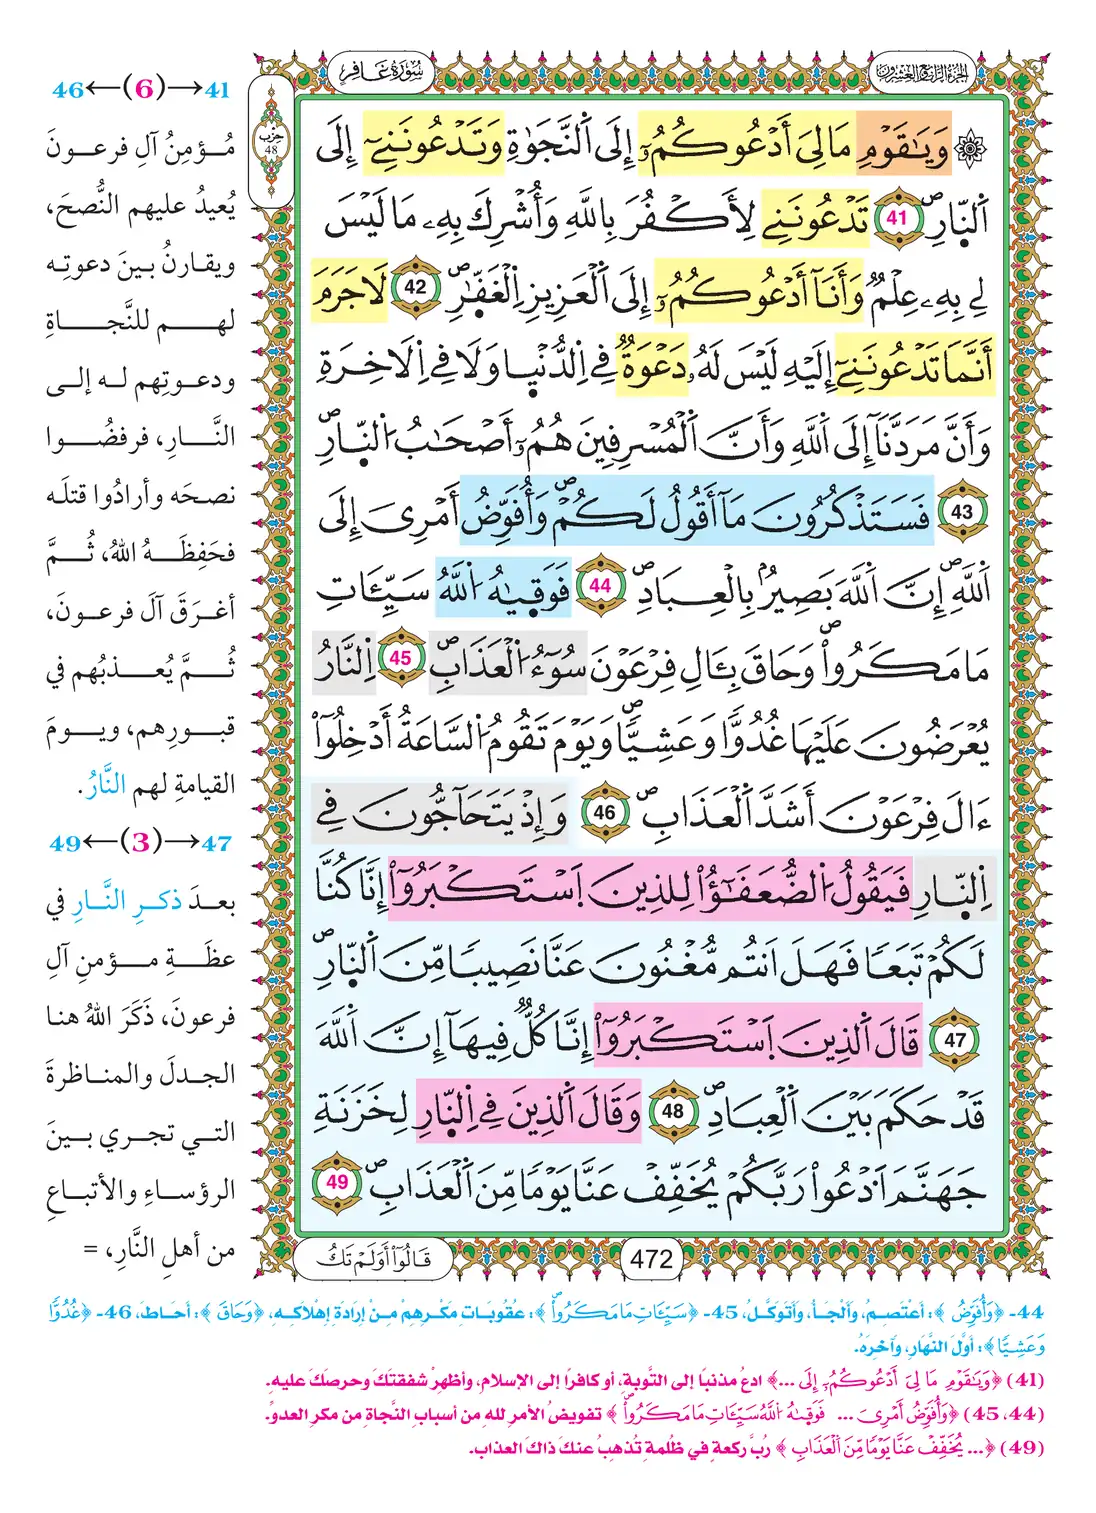 سُورَةُ غَافِرٍ
الجزء الرابع والعشرون
حِزْب
48
۞ وَيَٰقَوْمِ مَا لِيَ أَدْعُوكُمُۥٓ إِلَى اَ۬لنَّجَوٰةِ وَتَدْعُونَنِےٓ إِلَى
اَ۬لنّ۪ارِۖ 41 تَدْعُونَنِے لِأَكْفُرَ بِاللَّهِ وَأُشْرِكَ بِهِۦ مَا لَيْسَ
لِے بِهِۦ عِلْمٌ وَأَنَآ أَدْعُوكُمُۥٓ إِلَى اَ۬لْعَزِيزِ اِ۬لْغَفّٰ۪رِۖ 42 لَا جَرَمَ
أَنَّمَا تَدْعُونَنِےٓ إِلَيْهِ لَيْسَ لَهُۥ دَعْوَةٌ فِے اِ۬لدُّنْي۪ا وَلَا فِے اِ۬لَاخِرَةِ
وَأَنَّ مَرَدَّنَآ إِلَى اَ۬للَّهِ وَأَنَّ اَ۬لْمُسْرِفِينَ هُمُۥٓ أَصْحَٰبُ اُ۬لنّ۪ارِۖ
43 فَسَتَذْكُرُونَ مَآ أَقُولُ لَكُمْۖ وَأُفَوِّضُ أَمْرِيَ إِلَى
اَ۬للَّهِۖ إِنَّ اَ۬للَّهَ بَصِيرُۢ بِالْعِبَادِۖ 44 فَوَق۪يٰهُ اُ۬للَّهُ سَيِّـَٔاتِ
مَا مَكَرُواْۖ وَحَاقَ بِـَٔالِ فِرْعَوْنَ سُوٓءُ اُ۬لْعَذَابِۖ 45 اِ۬لنَّارُ
يُعْرَضُونَ عَلَيْهَا غُدُوّٗا وَعَشِيّٗاۖ وَيَوْمَ تَقُومُ اُ۬لسَّاعَةُ أَدْخِلُوٓاْ
ءَالَ فِرْعَوْنَ أَشَدَّ اَ۬لْعَذَابِۖ 46 وَإِذْ يَتَحَآجُّونَ فِے
اِ۬لنّ۪ارِ فَيَقُولُ اُ۬لضُّعَفَٰٓؤُاْ لِلذِينَ اَ۪سْتَكْبَرُوٓاْ إِنَّا كُنَّا
لَكُمْ تَبَعاٗ فَهَلَ اَنتُم مُّغْنُونَ عَنَّا نَصِيباٗ مِّنَ اَ۬لنّ۪ارِۖ
47 قَالَ اَ۬لذِينَ اَ۪سْتَكْبَرُوٓاْ إِنَّا كُلّٞ فِيهَآ إِنَّ اَ۬للَّهَ
قَدْ حَكَمَ بَيْنَ اَ۬لْعِبَادِۖ 48 وَقَالَ اَ۬لذِينَ فِے اِ۬لنّ۪ارِ لِخَزَنَةِ
جَهَنَّمَ اَ۟دْعُواْ رَبَّكُمْ يُخَفِّفْ عَنَّا يَوْماٗ مِّنَ اَ۬لْعَذَابِۖ 49
قَالُوٓاْ أَوَلَمْ تَكُ
472
41→(6)←46
مُؤمِنُ آلِ فرعونَ
يُعيدُ عليهم النُّصحَ،
ويقارنُ بينَ دعوتِه
لهم للنَّجاةِ
ودعوتِهم له إلى
النَّارِ، فرفضُوا
نصحَه وأرادُوا قتلَه
فحَفِظَهُ اللهُ، ثُمَّ
أغرَقَ آلَ فرعونَ،
ثُمَّ يُعذبُهم في
قبورِهم، ويومَ
القيامةِ لهم النَّارُ.
47→(3)←49
بعدَ ذكرِ النَّارِ في
عظَةِ مؤمنِ آلِ
فرعونَ، ذَكَرَ اللهُ هنا
الجدلَ والمناظرةَ
التي تجري بينَ
الرؤساءِ والأتباعِ
من أهلِ النَّارِ، =
44- ﴿وَأُفَوِّضُ﴾: أعْتَصِمُ، وألْجَأُ، وأتَوَكَّلُ، 45- ﴿سَيِّـَٔاتِ مَا مَكَرُواْۖ﴾: عُقُوبَاتِ مَكْرِهِمْ مِنْ إرَادَةِ إهْلَاكِهِ، ﴿وَحَاقَ﴾: أحَاطَ، 46- ﴿غُدُوّٗا
وَعَشِيّٗا﴾: أوَّلَ النَّهَارِ، وآخِرَهُ.
(41) ﴿وَيَٰقَوْمِ مَا لِيَ أَدْعُوكُمُۥٓ إِلَى ...﴾ ادعُ مذنبًا إلى التَّوبةِ، أو كافرًا إلى الإسلامِ، وأظهرْ شفقتَكَ وحرصَكَ عليهِ.
(44، 45) ﴿وَأُفَوِّضُ أَمْرِيَ ... فَوَق۪يٰهُ اُ۬للَّهُ سَيِّـَٔاتِ مَا مَكَرُواْۖ﴾ تفويضُ الأمرِ للهِ من أسبابِ النَّجاةِ من مكرِ العدوِّ.
(49) ﴿... يُخَفِّفْ عَنَّا يَوْماٗ مِّنَ اَ۬لْعَذَابِ﴾ رُبَّ ركعةٍ في ظُلمةٍ تُذهبُ عنكَ ذاكَ العذاب.